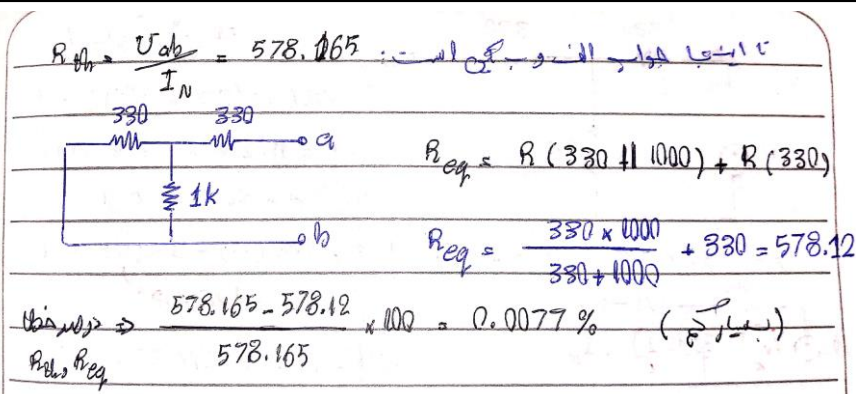 R_th = U_ab / I_N = 578.165 تا اینجا جواب الف و ب یکی است:
330 330
a
R_eq = R(330 || 1000) + R(330)
1k
b
R_eq = 330 × 1000 / 330 + 1000 + 330 = 578.12
درصد خطا ⇒ 578.165 - 578.12 / 578.165 × 100 = 0.0077 % (بسیار کم)
R_th و R_eq